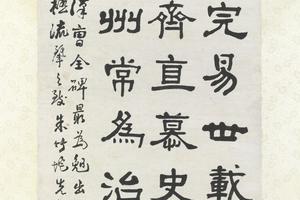 完易世載
齊直慕史
州常為治
漢曹全碑最為晚出
極流麗之致朱竹垞先